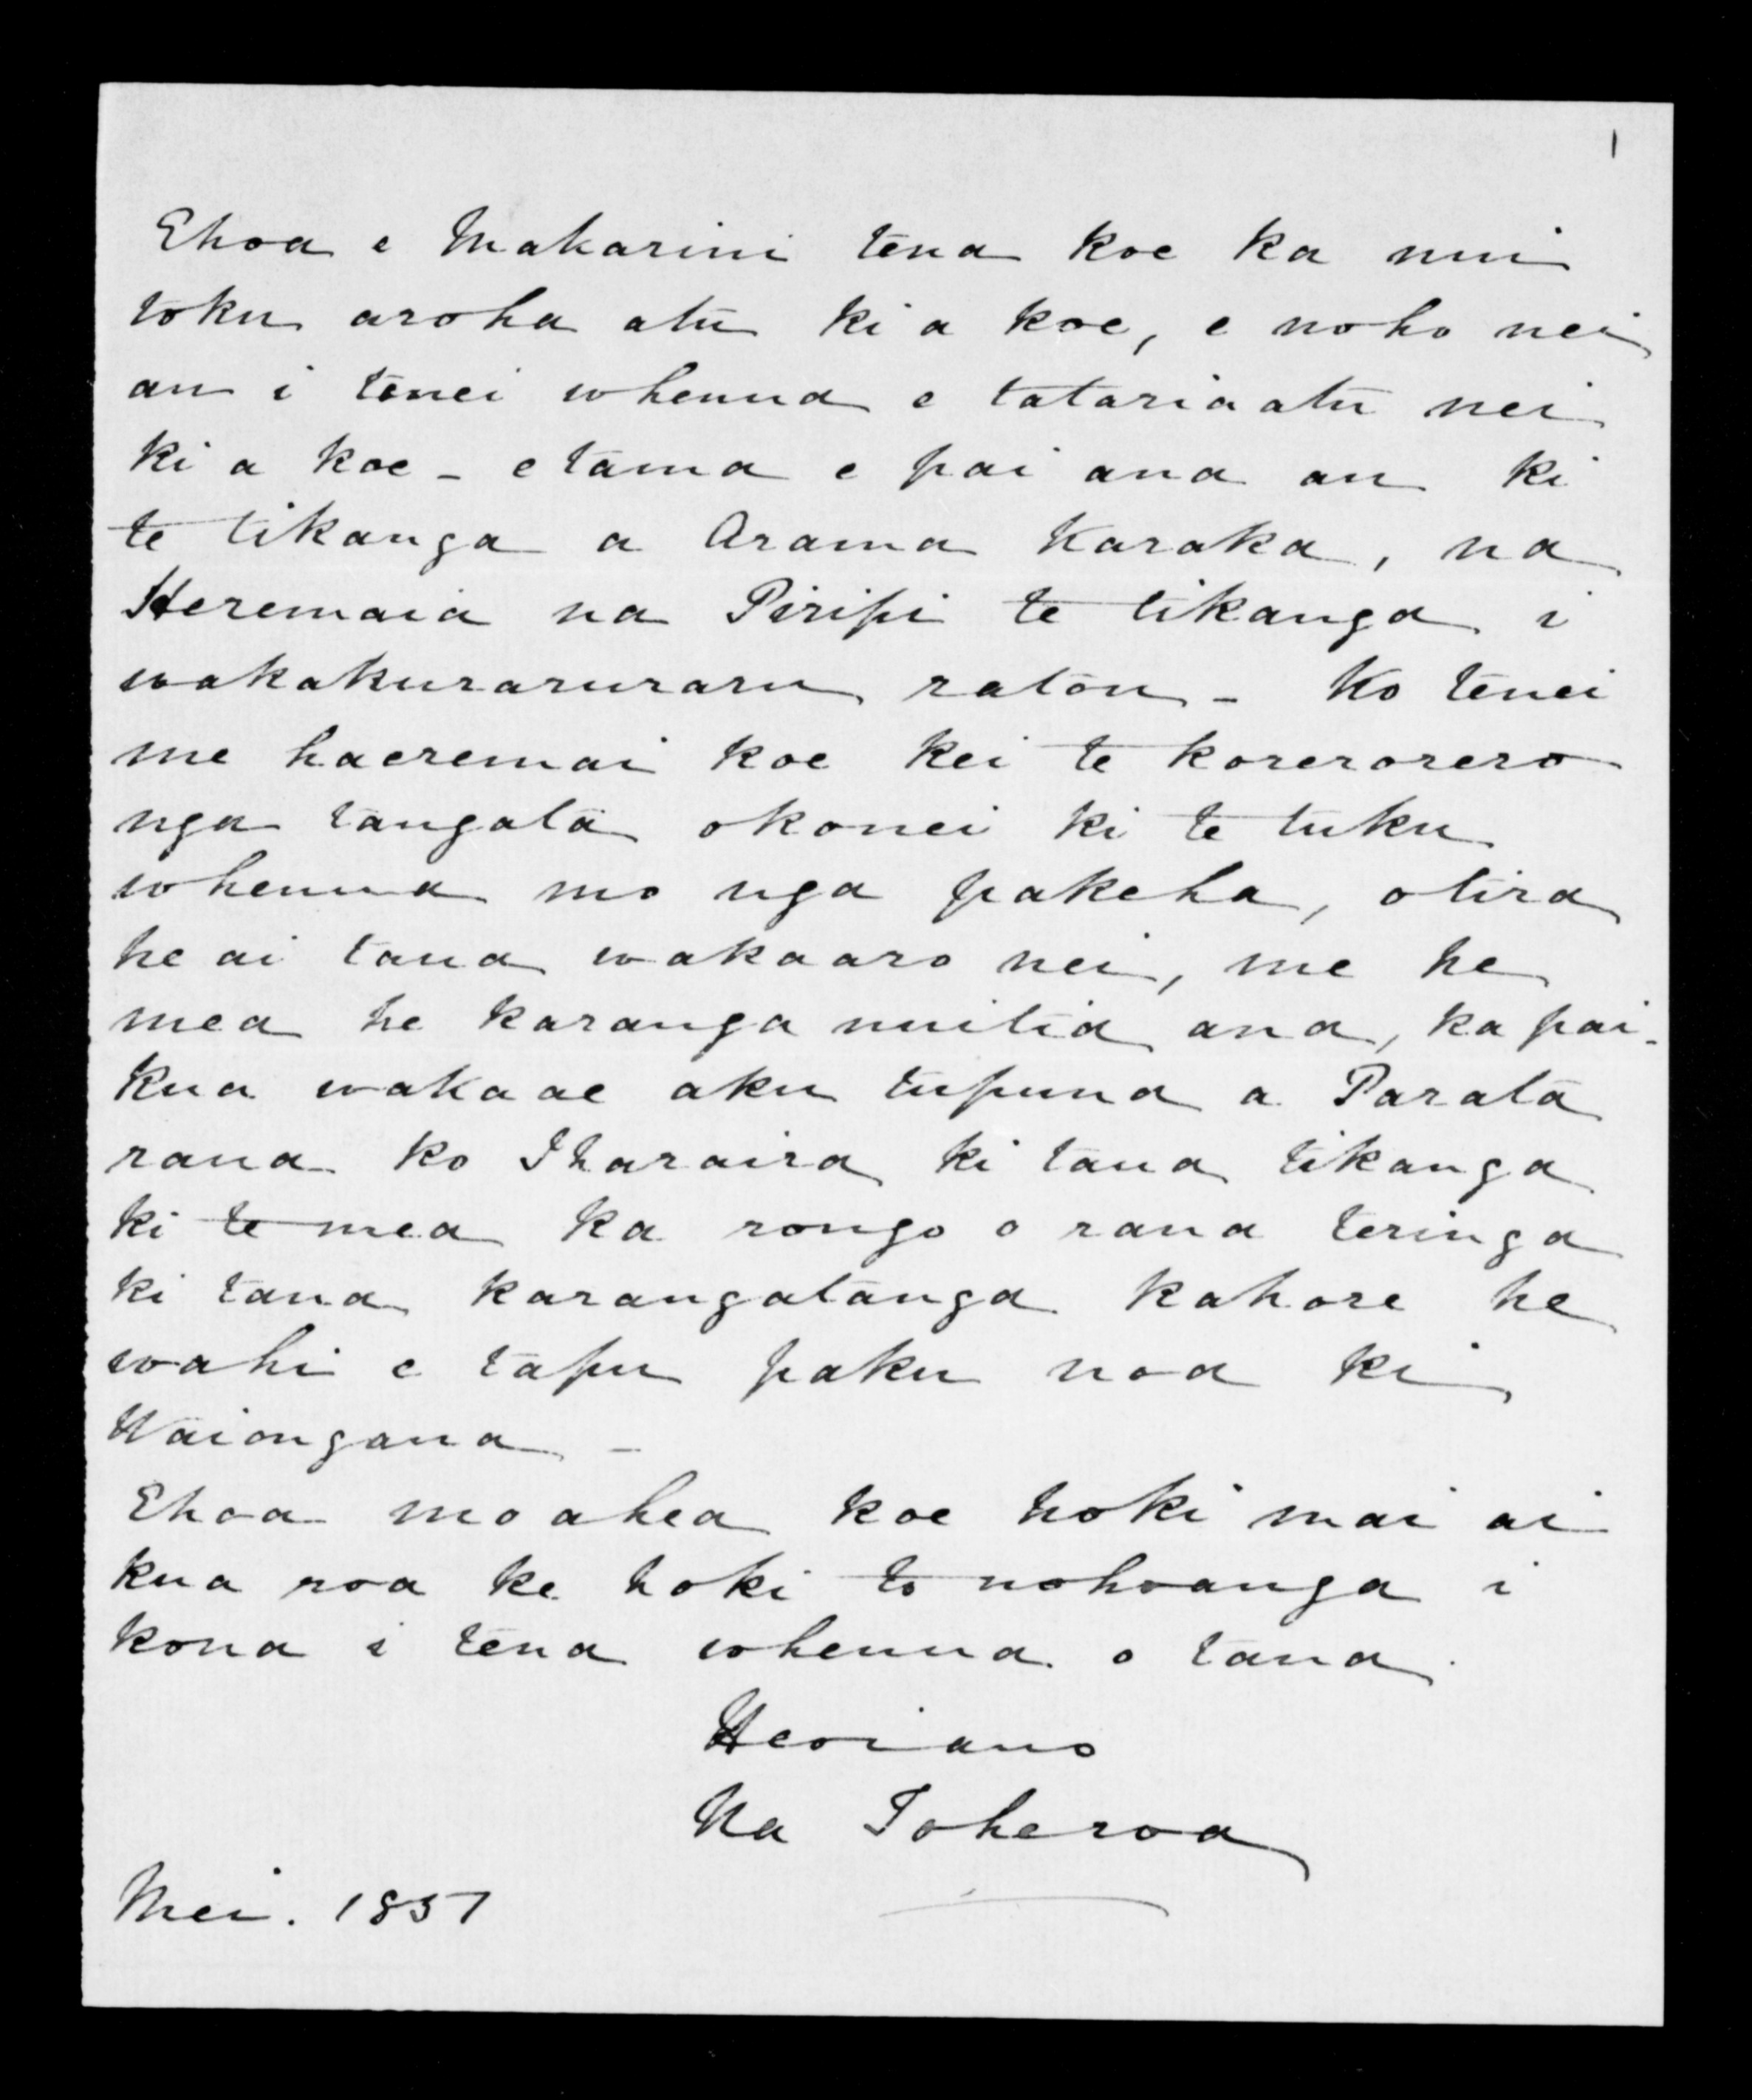 1
Ehoa e Makarini tena koe ka nui
toku aroha atu ki a koe, e noho nei
au i tenei whenua e tatariaatu nei
ki a koe - etama e pai ana au ki
te tikanga a Arama Karaka, na
Heremaia na Piripi te tikanga i
wakakuraruraru ratou - Ko tenei
me haeremai koe kei te korerorero
nga tangata okonei ki te tuku
whenua mo nga pakeha, otira
he ai taua wakaaro nei, me he
mea he karanga nuitia ana, ka pai -
Kua wakaae aku tupuna a Parata
raua ko Iharaira ki taua tikanga
ki te mea ka rongo o raua teringa
ki taua karangatanga kahore he
wahi e tapu paku noa ki
Waiongana -
Ehoa mo ahea koe hoki mai ai
kua roa ke hoki to nohoanga i
kona i tena whenua o taua.
Heoiano
Na Toheroa
Mei. 1851